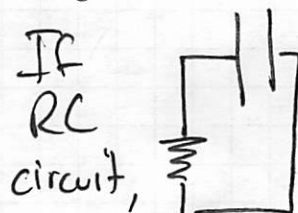 If
RC
circuit,